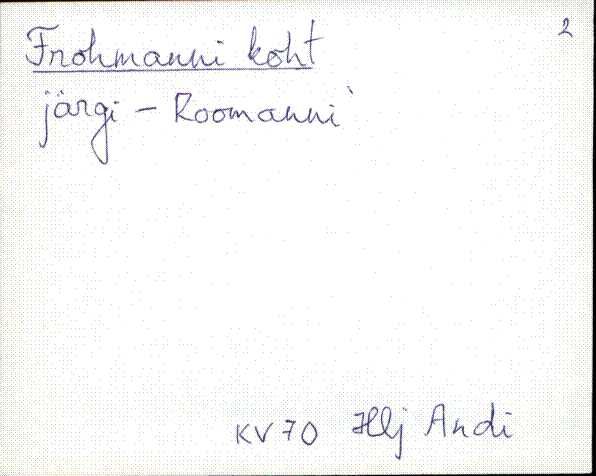 2
Frohmanni koht
järgi – Roomanni`
KV 70 Hlj Andi